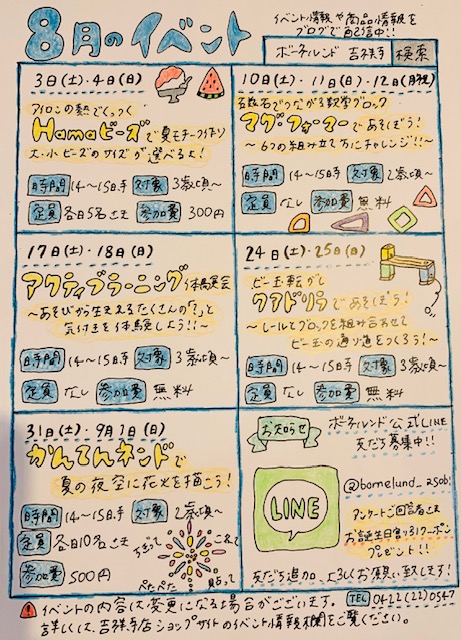 8月のイベント
イベント情報や商品情報を
ブログで配信中!!
ボーネルンド 吉祥寺 検索
3日(土)・4日(日)
アイロンの熱でくっつく
Hamaビーズで夏モチーフ作り
大・小ビーズのサイズが選べるよ!
時間 14〜15時 対象 3歳頃〜
定員 各日5名さま 参加費 300円
10日(土)・11日(日)・12日(月祝)
磁石でつながる数学ブロック
マグ・フォーマーであそぼう!
〜6つの組み立て方にチャレンジ!!〜
時間 14〜15時 対象 2歳頃〜
定員 なし 参加費 無料
17日(土)・18日(日)
アクティブラーニング体験会
〜あそびから生まれるたくさんの「?」と
気付きを体験しよう!!〜
時間 14〜15時 対象 3歳頃〜
定員 なし 参加費 無料
24日(土)・25日(日)
ビー玉転がし
クアドリラであそぼう!
〜レールとブロックを組み合わせて
ビー玉の通り道をつくろう!〜
時間 14〜15時 対象 3歳頃〜
定員 なし 参加費 無料
31日(土)・9月1日(日)
かんてんネンドで
夏の夜空に花火を描こう!
時間 14〜15時 対象 2歳頃〜
定員 各日10名さま
参加費 500円
ちぎって
こねて
ぺたぺた
お知らせ
ボーネルンド公式LINE
友だち募集中!!
LINE
アンケートご回答さま
お誕生日割引クーポン
プレゼント!!
友だち追加、よろしくお願い致します!
イベントの内容は変更になる場合がございます。
TEL 0422(22)0547
詳しくは、吉祥寺店ショップサイトのイベント情報欄をご覧ください。